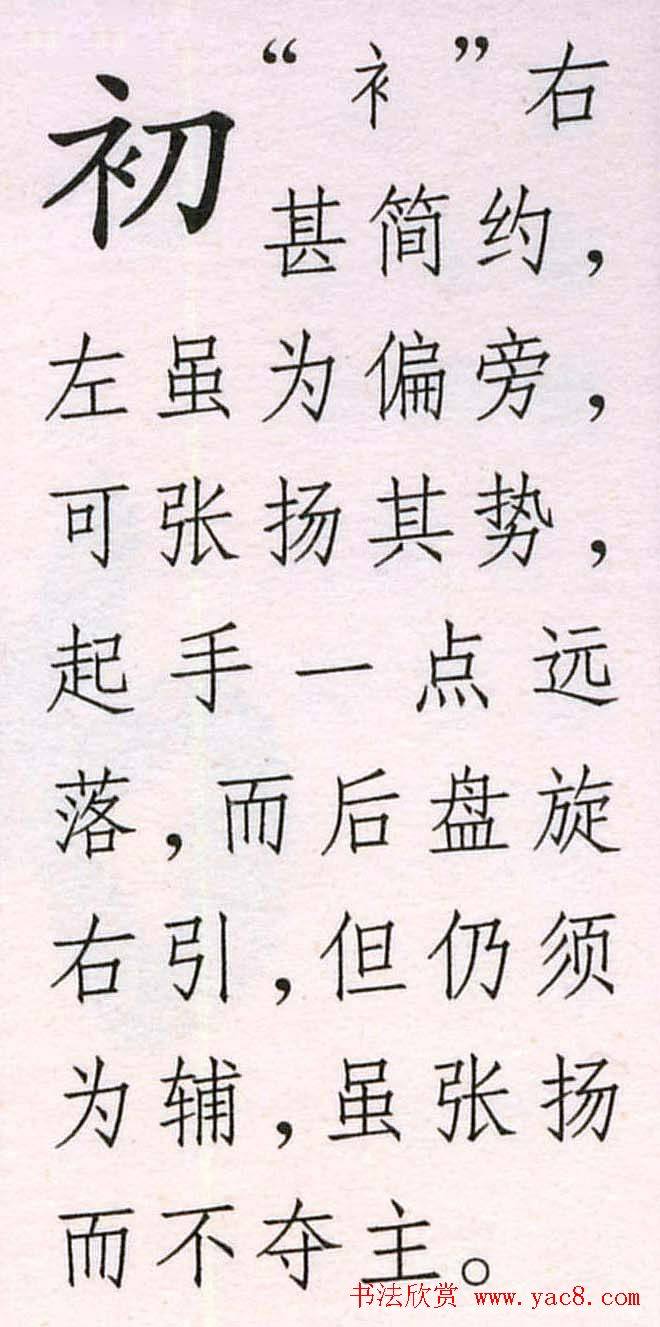 初
“衤”右
甚简约，
左虽为偏旁，
可张扬其势，
起手一点远
落，而后盘旋
右引，但仍须
为辅，虽张扬
而不夺主。
书法欣赏 www.yac8.com